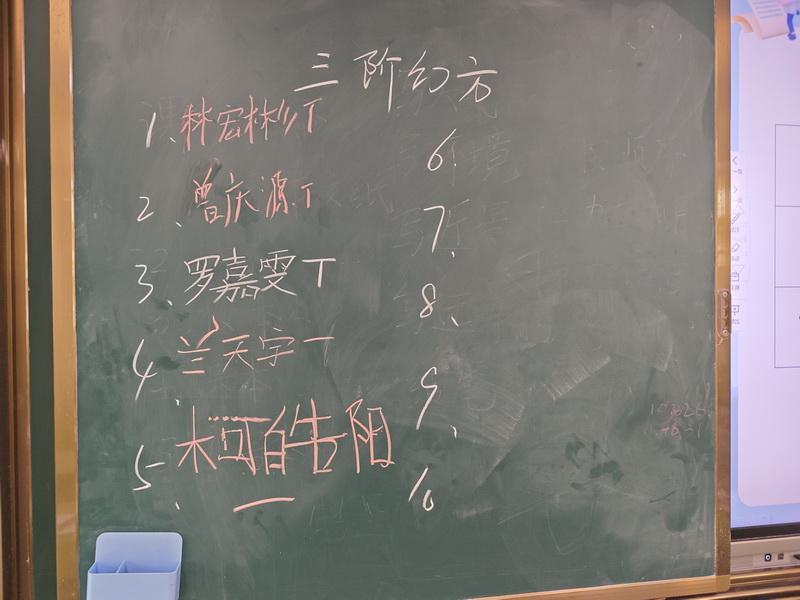 三阶幻方
1、林宏彬 T
2、曾庆源 T
3、罗嘉雯 T
4、兰天宇 一
5、柯皓阳 一
6、
7、
8、
9、
10